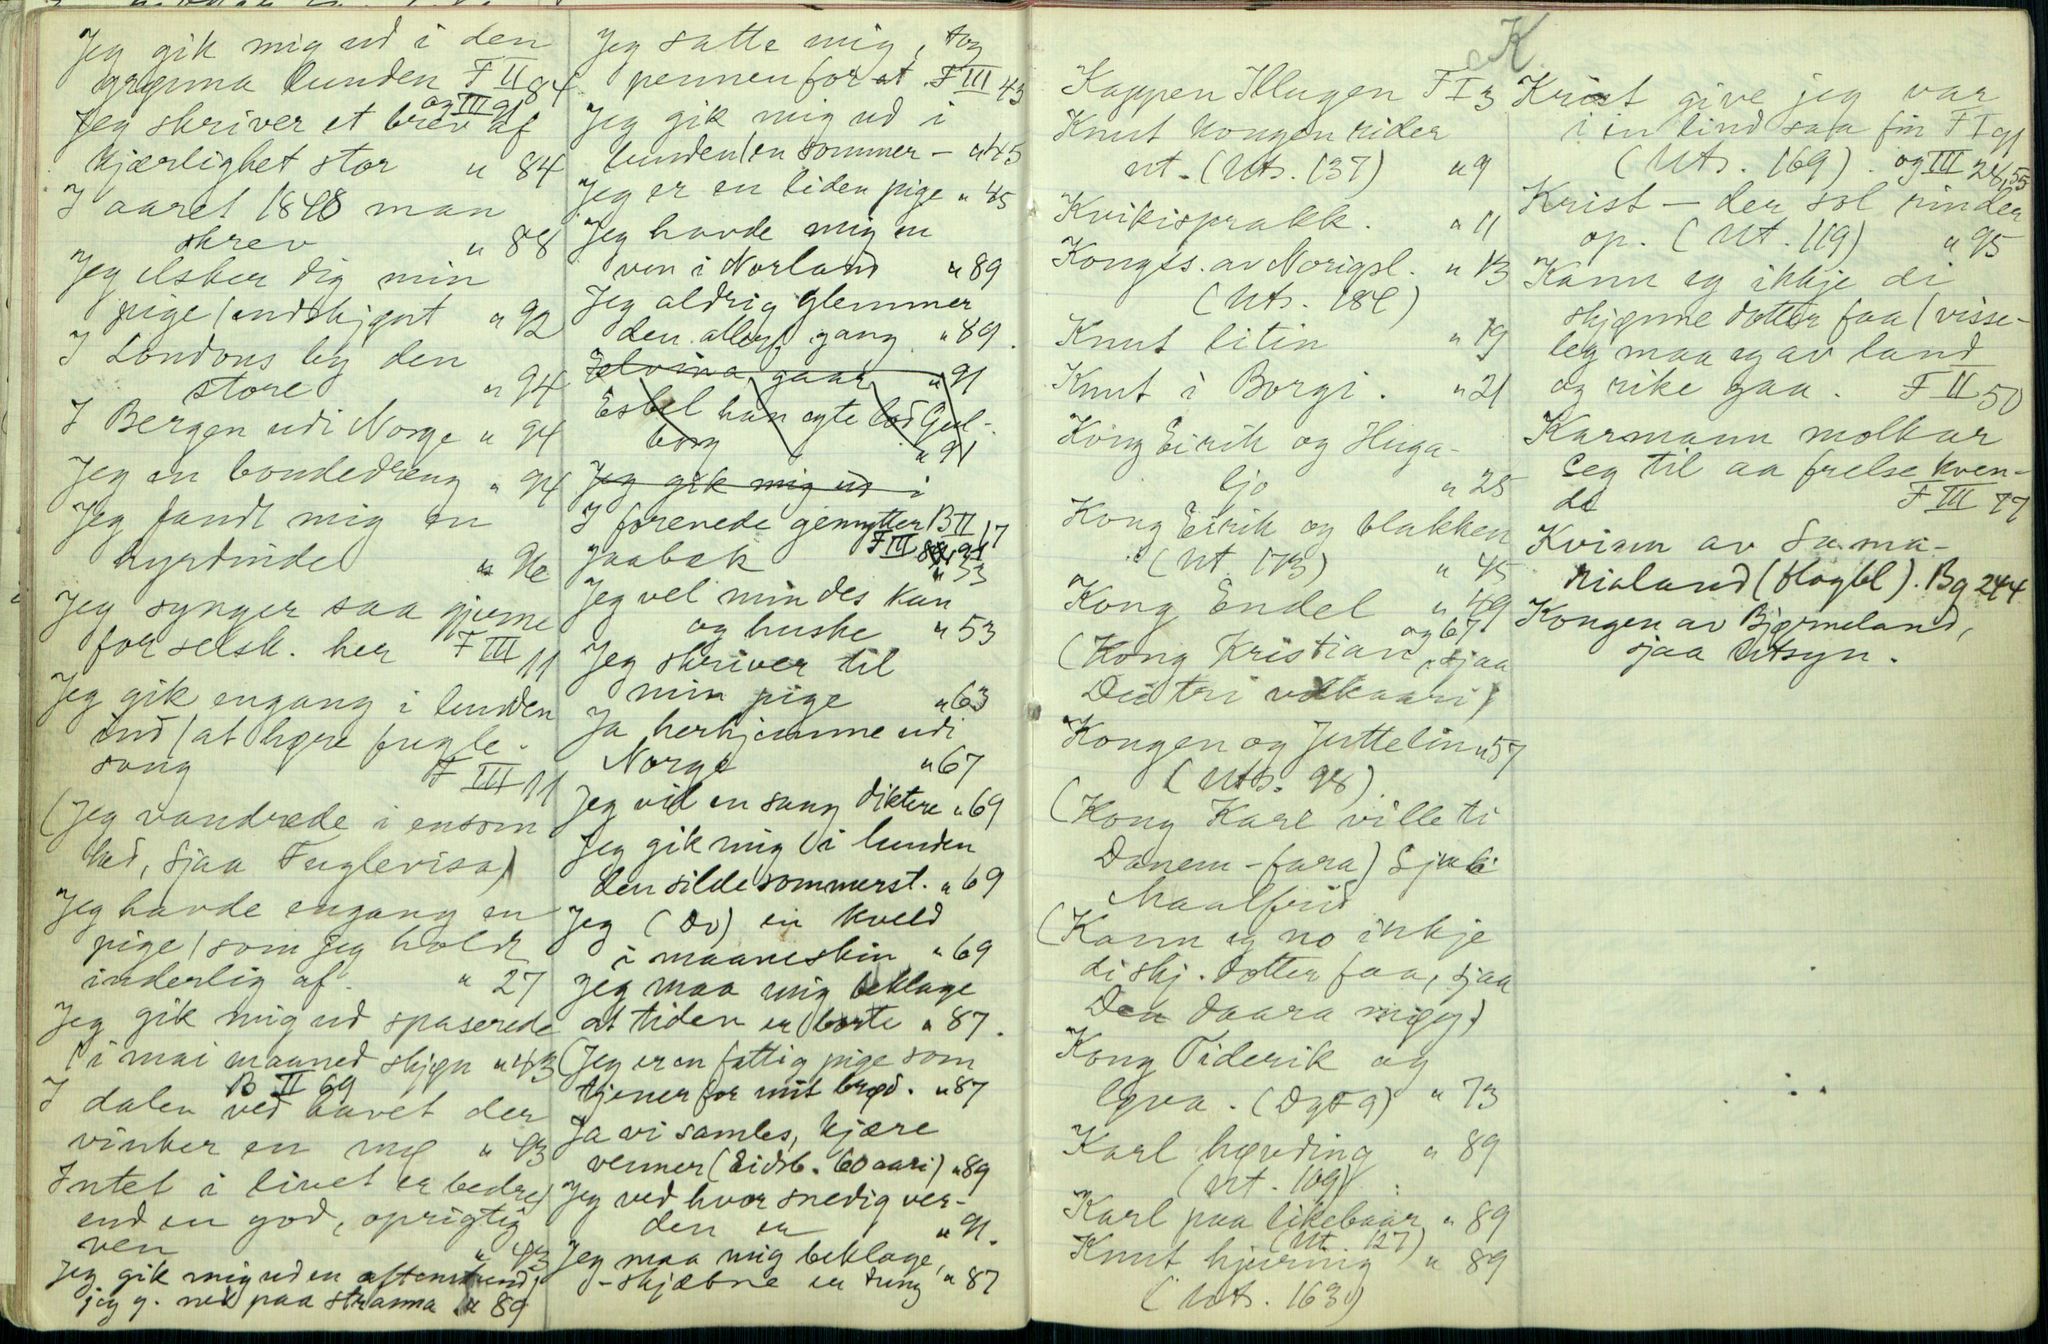 Jeg gik mig ud i den
grønna lunden F II 84
og III 91
Jeg skriver et brev af
kjærlighet stor " 84
I aaret 1848 man
skrev " 88
Jeg elsker dig min
pige / endskjønt " 92
I Londons by den
store " 94
I Bergen udi Norge " 94
Jeg en bondedreng " 94
Jeg fandt mig en
hyrdinde "
Jeg synger saa gjerne
for selsk. her F III 11
Jeg gik engang i lunden
ind / at høre fugle-
song F III 11
(Jeg vandrede i ensom
hed, sjaa Fuglevisa)
Jeg havde engang en
pige / som jeg holdt
inderlig af. " 27
Jeg gik mig ud spaserede
/ i mai maaned skjøn " 43
B II 69
I dalen ved havet der
vinker en mø " 43
Intet i livet er bedre /
end en god, oprigtig
ven " 43
Jeg gik mig ud en aftenstund /
jeg g. ned paa stranna " 89
Jeg satte mig, tog
pennen for at F III 43
Jeg gik mig ud i
lunden / en sommer - " 45
Jeg er en liden pige " 45
Jeg havde mig en
ven i Norland " 89
Jeg aldrig glemmer
den allers. gang " 89.
Elvina gaar " 91
Esbel han egte lod Gul-
borg " 91
Jeg gik mig ud i
I forenede gemytter B II 17
F III 91
Jaabæk " 53
Jeg vel mindes kan
og huske " 53
Jeg skriver til
min pige " 63
Ja herhjemme udi
Norge " 67
Jeg vil en sang diktere " 69
Jeg gik mig i lunden
den silde sommerst. " 69
Jeg (Di) en kveld
i maaneskin " 69
Jeg maa mig beklage
at tiden er borte " 87.
(Jeg er en fattig pige som
tjener for mit brød. " 87
Ja vi samles, kjære
venner (Eidsb. 60 aari) " 89
Jeg ved hvor snedig ver-
den er " 91.
Jeg maa mig beklage,
- skjæbne er tung " 87
K.
Kappen Illugen F I 3
Knut kongen rider
ut - (Uts. 137) " 9
Kvikisprakk. " 11
Kongss. av Norigsl. " 13
(Uts. 186)
Knut litin " 19
Knut i Borgi. " 21
Kong Eirik og Huga-
ljo " 25
Kong Eirik og blakken
(Ut 173) " 45
Kong Endel " 49
og 67
(Kong Kristian, sjaa
Dei tri vilkaari)
Kongen og Juttelin " 57
(Uts. 98).
(Kong Karl ville ti
Danem - fara) sjaa
Maalfrid
(Kann eg no inkje
di skj. dotter faa, sjaa
Den daara møy.)
Kong Tiderik og
løva. (DgF 9) " 73
Karl høvding " 89
(Ut. 109).
Karl paa likebaar " 89
(Ut 127)
Knut hjurning " 89
(Uts. 163)
Krist give jeg var
i en lind saa fin F I 91
(Uts. 169). og III 28, 55
Krist - der sol rinder
op. (Ut. 119) " 95
Kann eg ikkje di
skjønne dotter faa / visse-
leg maa eg av land
og rike gaa. F II 50
Karmann molkar
seg til aa frelse kven-
de F III 77
Kvinn av Sama-
rialand (flogbl). Bg 244
Kongen av Bjørneland,
sjaa Utsyn.